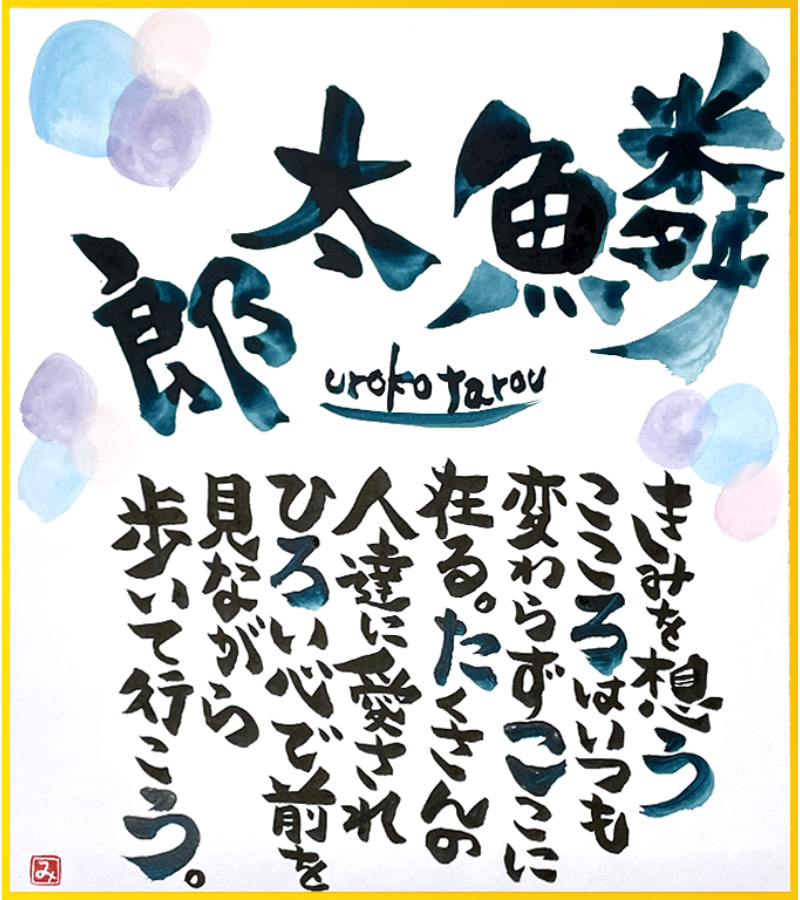 鱗太郎
uroko tarou
きみを想う
こころはいつも
変わらずここに
在る。たくさんの
人達に愛され
ひろい心で前を
見ながら
歩いて行こう。
み